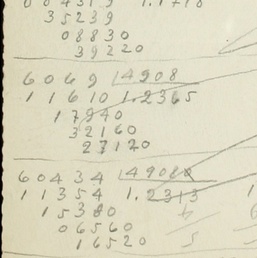 35239
08830
39220
6069 |4908
11610 1.2365
17940
32160
27120
60434 |49080
11354 1.2313
15380
06560
16520 5